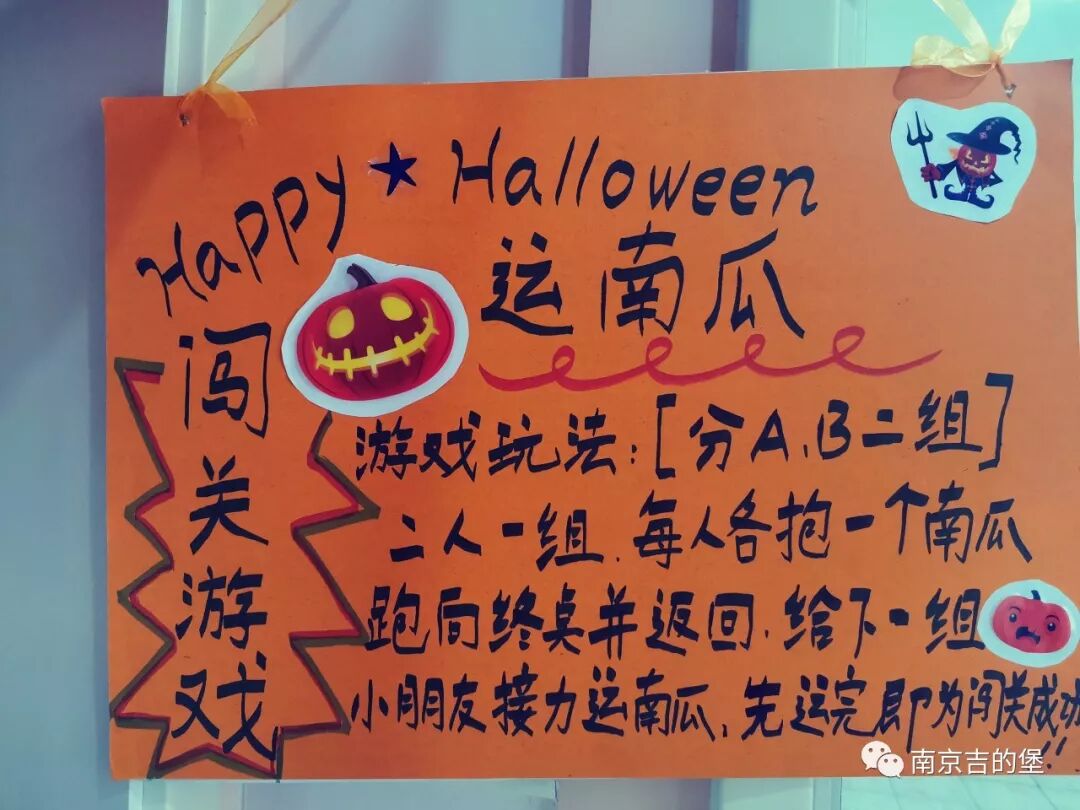 Happy ★ Halloween
运南瓜
闯关游戏
游戏玩法:[分A、B二组]
二人一组、每人各抱一个南瓜
跑向终点并返回、给下一组
小朋友接力运南瓜,先运完即为闯关成功!!
南京吉的堡